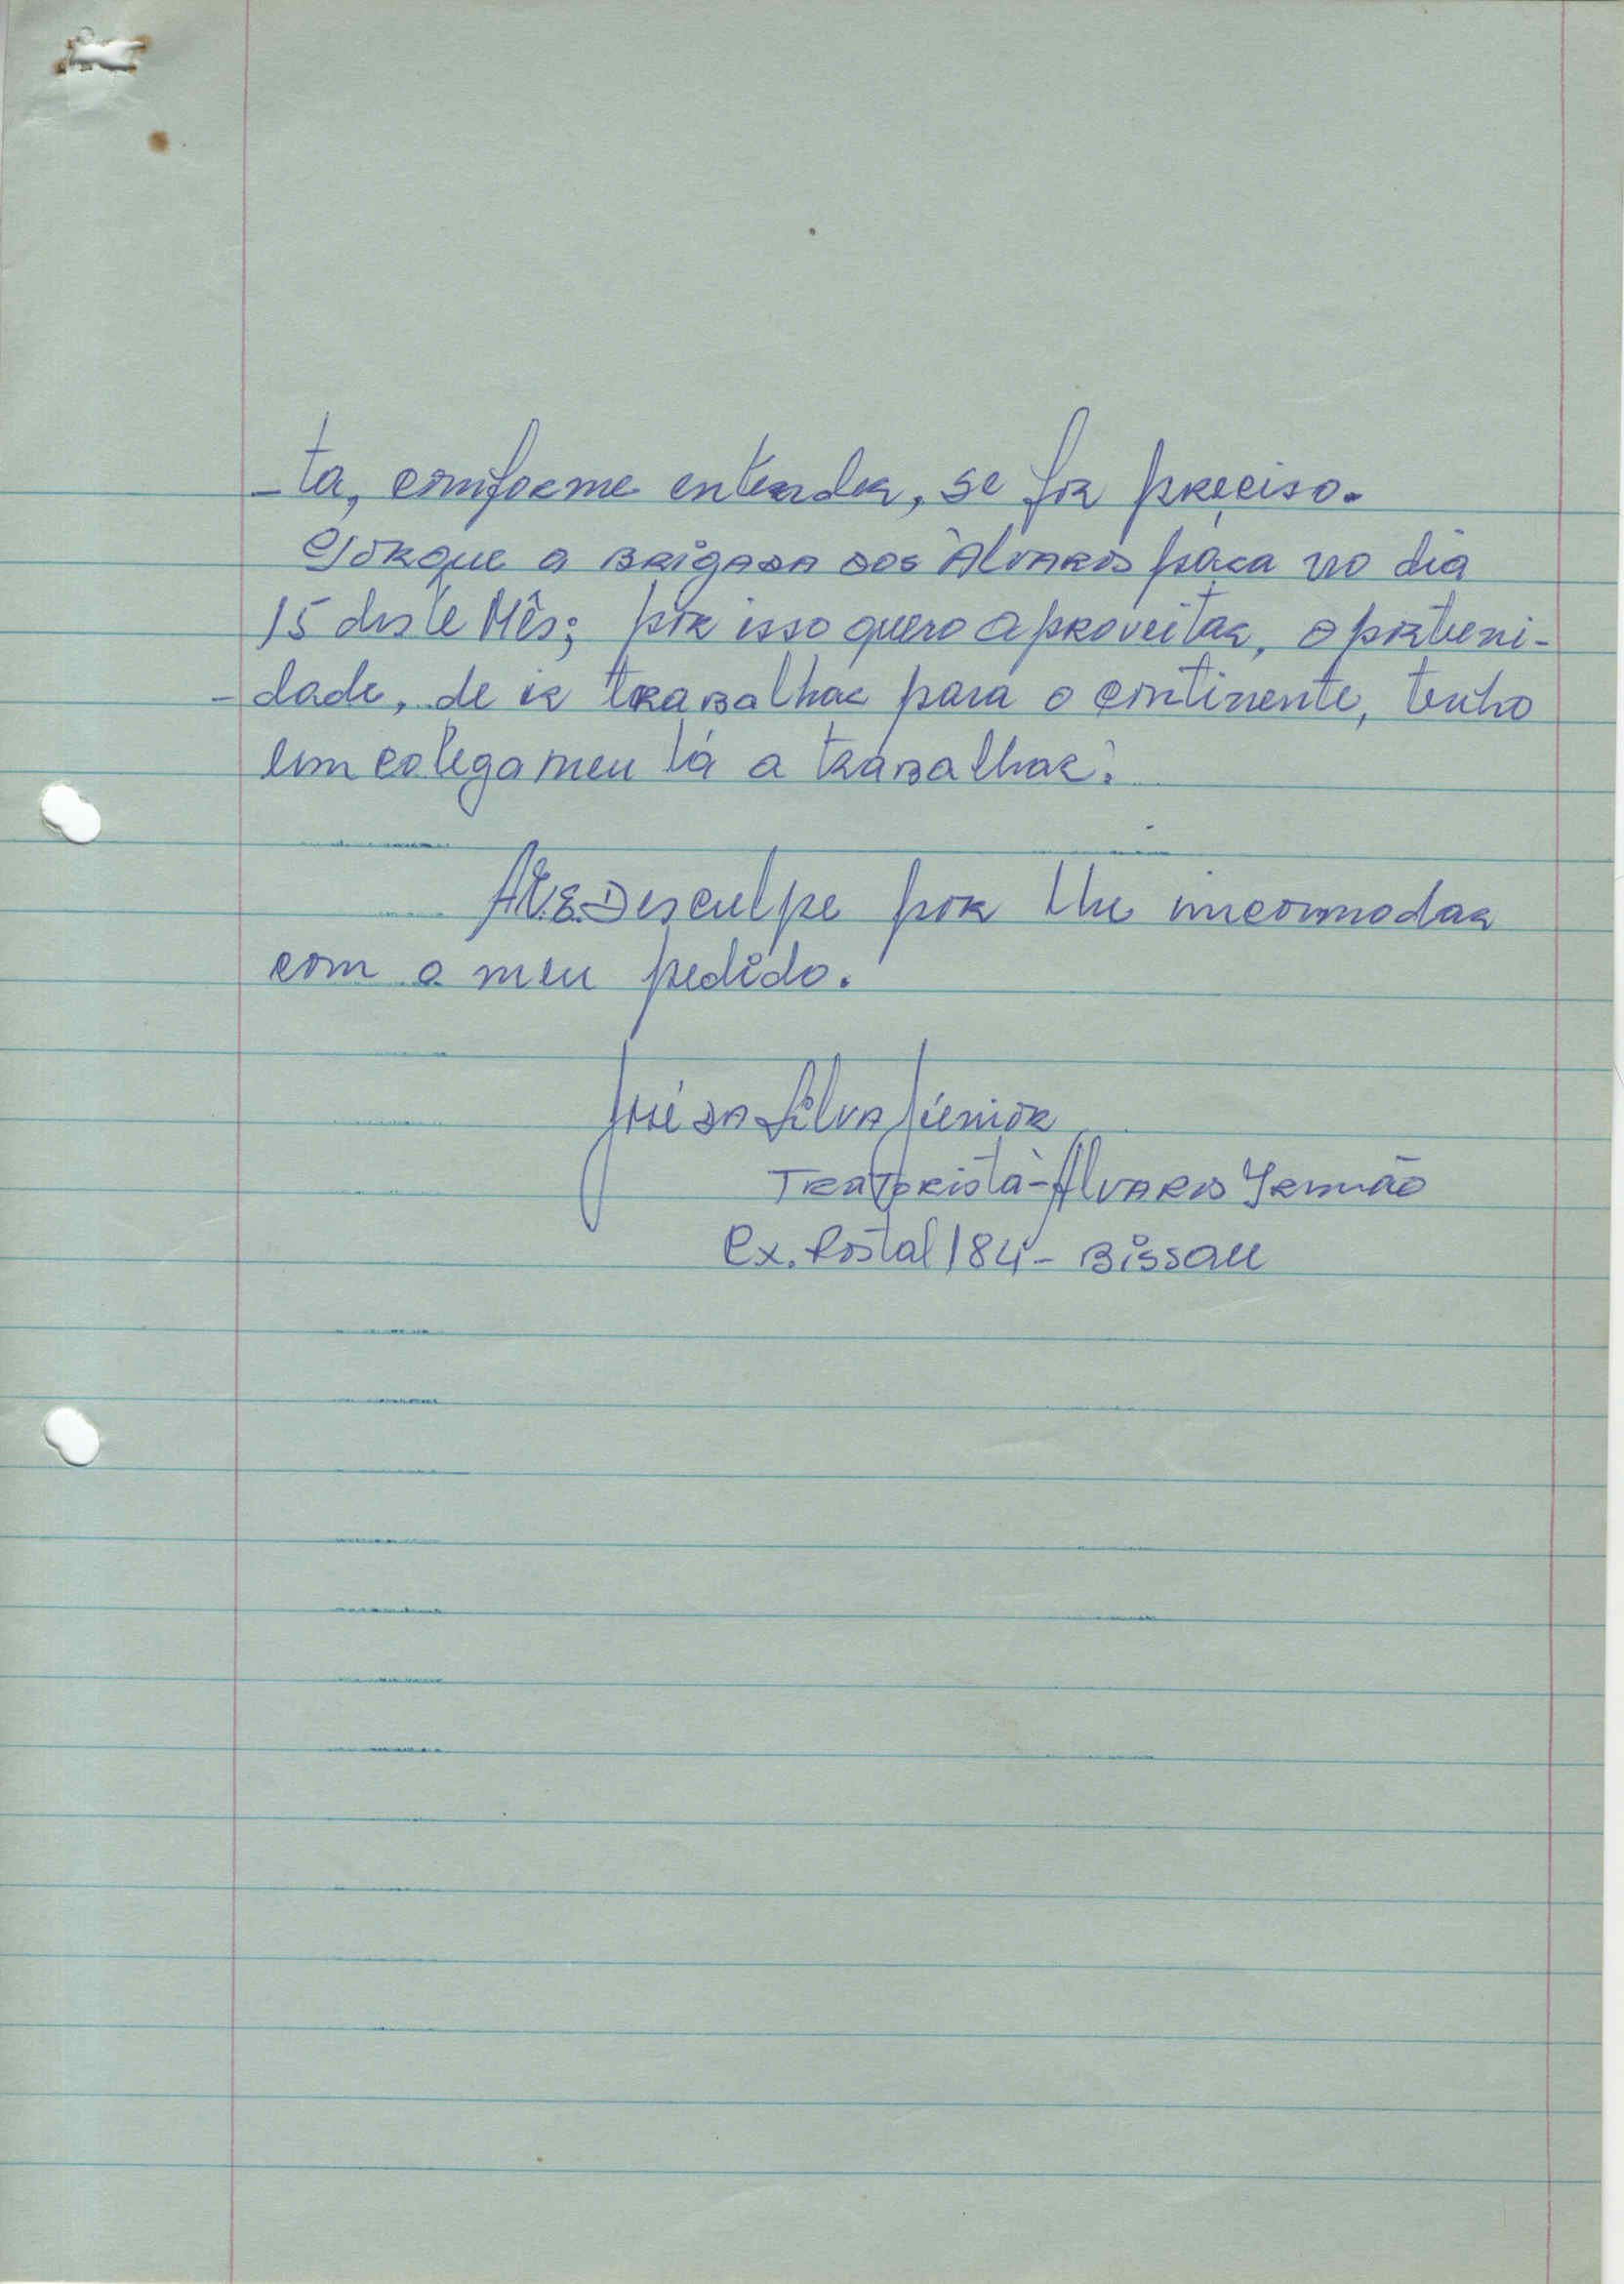 -ta, comforme entender, se for preciso.
Porque a Brigada dos Álvaros pára no dia
15 deste Mês; por isso quero aproveitar, oportuni-
-dade, de ir trabalhar para o continente, tenho
um colega meu lá a trabalhar.
A V.E. Desculpe por lhe incommodar
com o meu pedido.
José da Silva Júnior
Tratorista-Alvaros Irmão
Cx. Postal 184 - Bissau